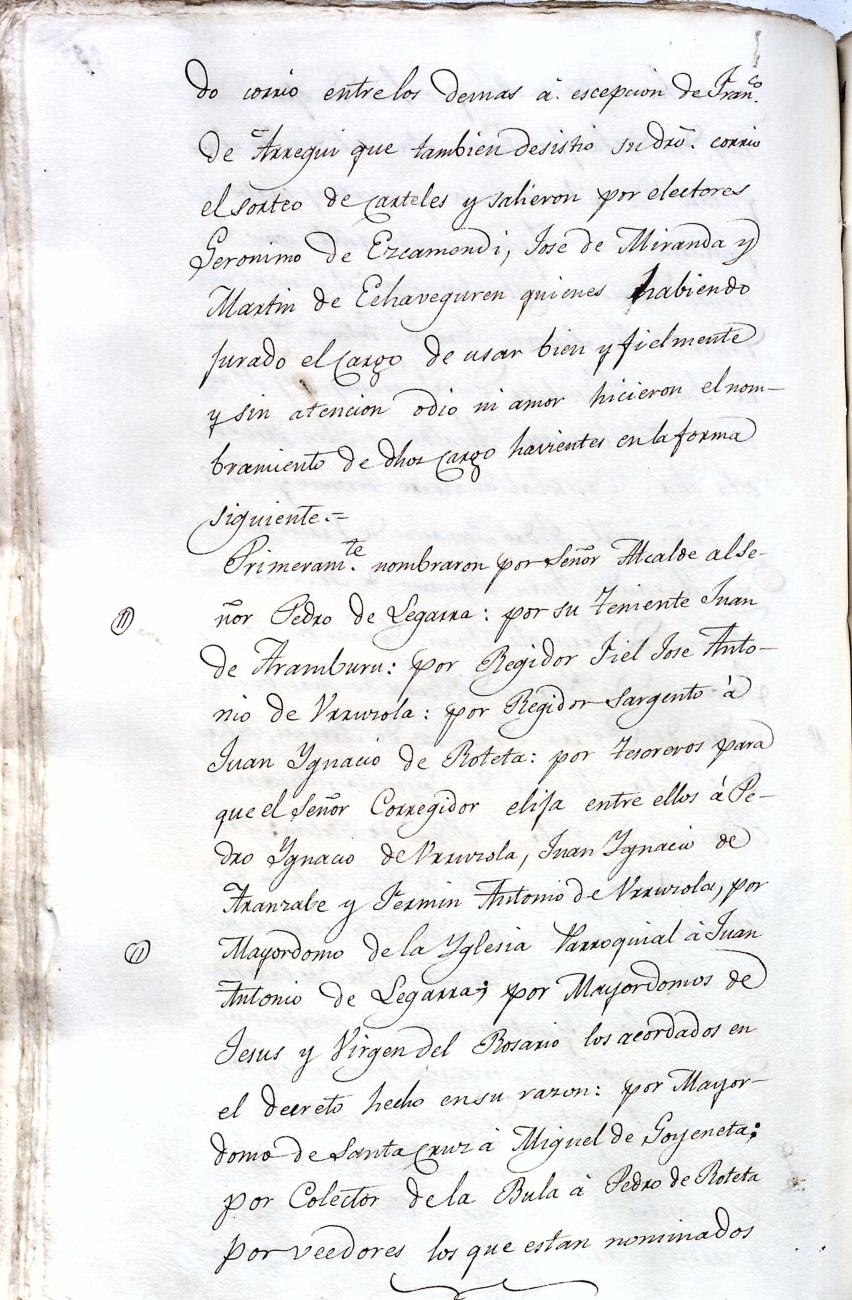 do corrio entre los demas à escepcion de Fran.co
de Arregui que tambien desistio su dró. corrio
el sorteo de carteles y salieron por electores
Geronimo de Ezcamendi, Jose de Miranda y
Martin de Echaveguren quienes habiendo
jurado el cargo de usar bien y fielmente
y sin atencion odio ni amor hicieron el nom-
bramiento de dhos cargo havientes en la forma
siguiente.=
Primeram.te nombraron por Señor Alcalde al Se-
ñor Pedro de Legarra: por su Teniente Juan
de Aramburu: por Regidor Fiel Jose Anto-
nio de Urruzola: por Regidor Sargento à
Juan Ygnacio de Roteta: por tesoreros para
que el Señor Corregidor elija entre ellos à Pe-
dro Ygnacio de Urruzola, Juan Ygnacio de
Aranzabe y Fermin Antonio de Urruzola, por
Mayordomo de la Yglesia Parroquial à Juan
Antonio de Legarra; por Mayordomos de
Jesus y Virgen del Rosario los acordados en
el decreto hecho en su razon: por Mayor-
domo de Santa Cruz à Miguel de Goyeneta;
por Colector de la Bula à Pedro de Roteta
por veedores los que estan nominados